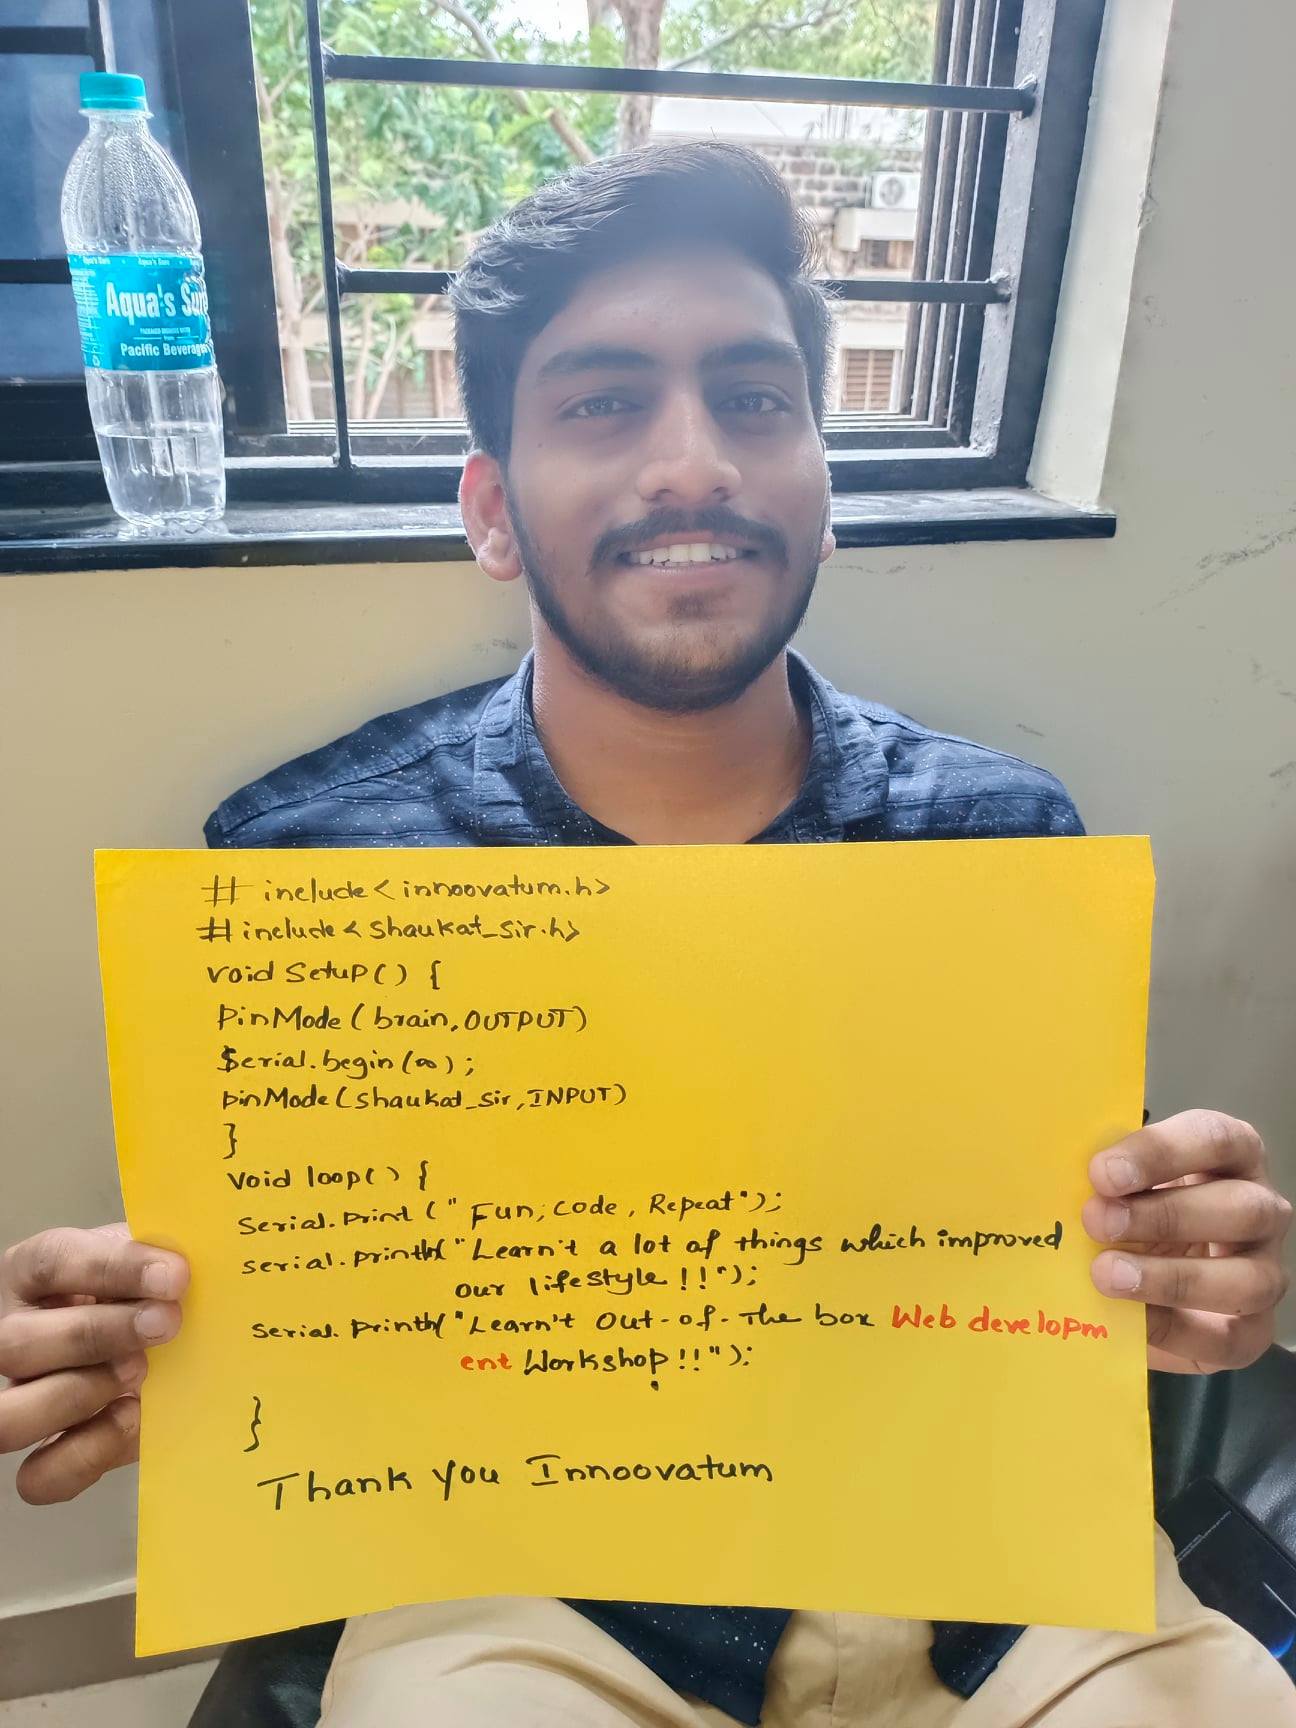 Aqua's Sure
PACKAGED DRINKING WATER
from
Pacific Beverages
# include <innoovatum.h>
# include <shaukat_sir.h>
void setup() {
pinMode (brain, OUTPUT)
Serial.begin (∞);
pinMode (shaukat_sir, INPUT)
}
void loop() {
serial.print (" Fun, code, Repeat");
serial.println("Learn't a lot of things which improved
our lifestyle !!");
serial.println("Learn't Out-of-the box Web developm
ent Workshop!!");
}
Thank you Innoovatum